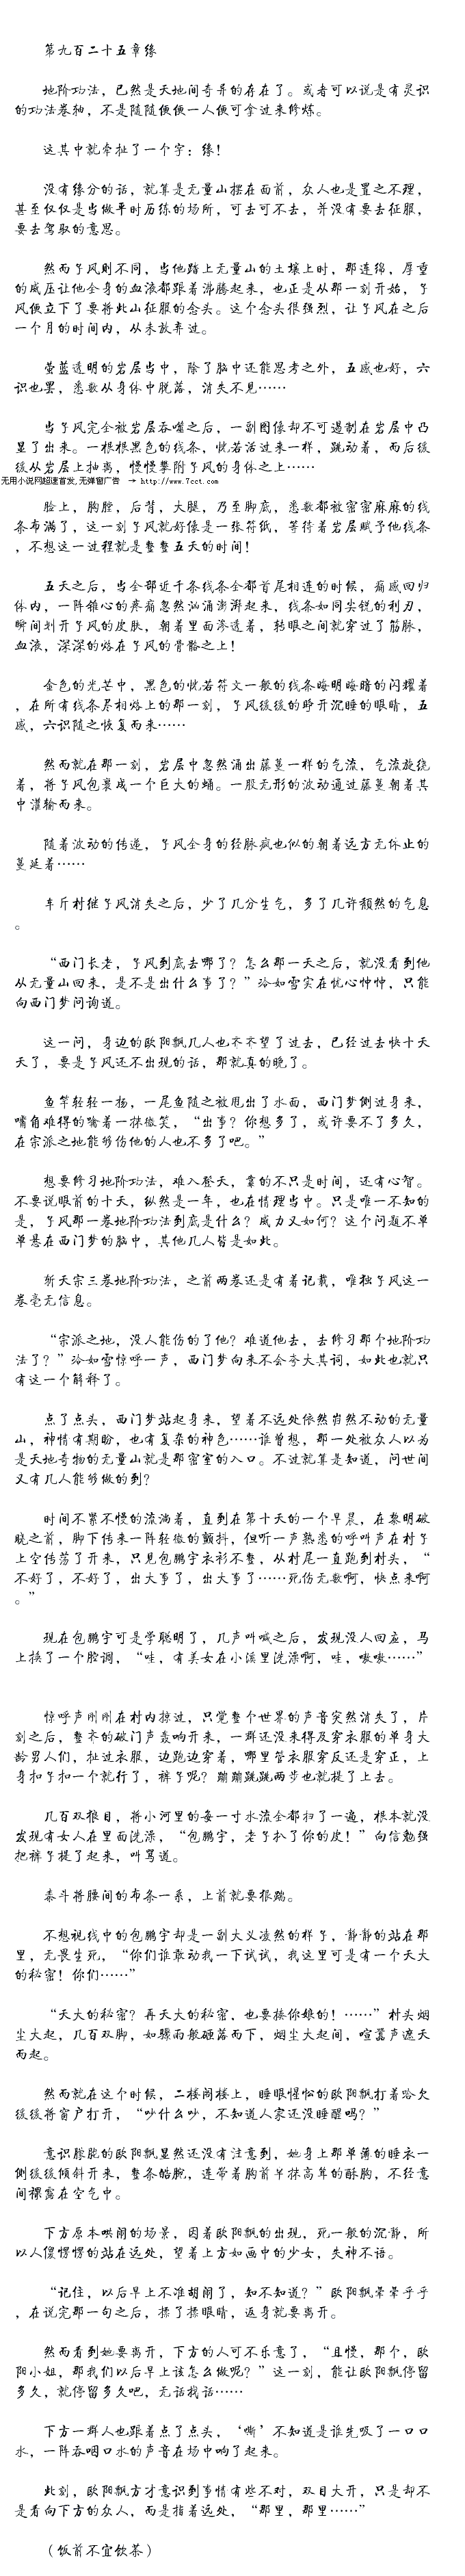 第九百二十五章缘
地阶功法，已然是天地间奇异的存在了。或者可以说是有灵识
的功法卷轴，不是随随便便一人便可拿过来修炼。
这其中就牵扯了一个字：缘！
没有缘分的话，就算是无量山摆在面前，众人也是置之不理，
甚至仅仅是当做平时历练的场所，可去可不去，并没有要去征服，
要去驾驭的意思。
然而子风则不同，当他踏上无量山的土壤上时，那连绵，厚重
的威压让他全身的血液都跟着沸腾起来，也正是从那一刻开始，子
风便立下了要将此山征服的念头。这个念头很强烈，让子风在之后
一个月的时间内，从未放弃过。
莹蓝透明的岩层当中，除了脑中还能思考之外，五感也好，六
识也罢，悉数从身体中脱落，消失不见……
当子风完全被岩层吞噬之后，一副图像却不可遏制在岩层中凸
显了出来。一根根黑色的线条，恍若活过来一样，跳动着，而后缓
缓从岩层上抽离，慢慢攀附子风的身体之上……
无用小说网超速首发,无弹窗广告 → http://www.7cct.com
脸上，胸膛，后背，大腿，乃至脚底，悉数都被密密麻麻的线
条布满了，这一刻子风就好像是一张符纸，等待着岩层赋予他线条
，不想这一过程就是整整五天的时间！
五天之后，当全部近千条线条全都首尾相连的时候，痛感回归
体内，一阵锥心的疼痛忽然汹涌澎湃起来，线条如同尖锐的利刃，
瞬间划开子风的皮肤，朝着里面渗透着，转眼之间就穿过了筋脉，
血液，深深的烙在子风的骨骼之上！
金色的光芒中，黑色的恍若符文一般的线条晦明晦暗的闪耀着
，在所有线条尽相烙上的那一刻，子风缓缓的睁开沉睡的眼睛，五
感，六识随之恢复而来……
然而就在那一刻，岩层中忽然涌出藤蔓一样的气流，气流旋绕
着，将子风包裹成一个巨大的蛹。一股无形的波动通过藤蔓朝着其
中灌输而来。
随着波动的传递，子风全身的经脉疯也似的朝着远方无休止的
蔓延着……
车斤村继子风消失之后，少了几分生气，多了几许颓然的气息
。
“西门长老，子风到底去哪了？怎么那一天之后，就没看到他
从无量山回来，是不是出什么事了？”冷如雪实在忧心忡忡，只能
向西门梦问询道。
这一问，身边的欧阳飘几人也齐齐望了过去，已经过去快十天
天了，要是子风还不出现的话，那就真的晚了。
鱼竿轻轻一扬，一尾鱼随之被甩出了水面，西门梦侧过身来，
嘴角难得的噙着一抹微笑，“出事？你想多了，或许要不了多久，
在宗派之地能够伤他的人也不多了吧。”
想要修习地阶功法，难入登天，靠的不只是时间，还有心智。
不要说眼前的十天，纵然是一年，也在情理当中。只是唯一不知的
是，子风那一卷地阶功法到底是什么？威力又如何？这个问题不单
单悬在西门梦的脑中，其他几人皆是如此。
斩天宗三卷地阶功法，之前两卷还是有着记载，唯独子风这一
卷毫无信息。
“宗派之地，没人能伤的了他？难道他去，去修习那个地阶功
法了？”冷如雪惊呼一声，西门梦向来不会夸大其词，如此也就只
有这一个解释了。
点了点头，西门梦站起身来，望着不远处依然岿然不动的无量
山，神情有期盼，也有复杂的神色……谁曾想，那一处被众人以为
是天地奇物的无量山就是那密室的入口。不过就算是知道，问世间
又有几人能够做的到？
时间不紧不慢的流淌着，直到在第十天的一个早晨，在黎明破
晓之前，脚下传来一阵轻微的颤抖，但听一声熟悉的呼叫声在村子
上空传荡了开来，只见包鹏宇衣衫不整，从村尾一直跑到村头，“
不好了，不好了，出大事了，出大事了……死伤无数啊，快点来啊
。”
现在包鹏宇可是学聪明了，几声叫喊之后，发现没人回应，马
上换了一个腔调，“哇，有美女在小溪里洗澡啊，哇，嗷嗷……”
惊呼声刚刚在村内掠过，只觉整个世界的声音突然消失了，片
刻之后，整齐的破门声轰响开来，一群还没来得及穿衣服的单身大
龄男人们，扯过衣服，边跑边穿着，哪里管衣服穿反还是穿正，上
身扣子扣一个就行了，裤子呢？蹦蹦跳跳两步也就提了上去。
几百双狼目，将小河里的每一寸水流全都扫了一遍，根本就没
发现有女人在里面洗澡，“包鹏宇，老子扒了你的皮！”向信勉强
把裤子提了起来，叫骂道。
泰斗将腰间的布条一系，上前就要狠踹。
不想视线中的包鹏宇却是一副大义凌然的样子，静静的站在那
里，无畏生死，“你们谁敢动我一下试试，我这里可是有一个天大
的秘密！你们……”
“天大的秘密？再天大的秘密，也要揍你娘的！……”村头烟
尘大起，几百双脚，如骤雨般砸落而下，烟尘大起间，喧嚣声遮天
而起。
然而就在这个时候，二楼阁楼上，睡眼惺忪的欧阳飘打着哈欠
缓缓将窗户打开，“吵什么吵，不知道人家还没睡醒吗？”
意识朦胧的欧阳飘显然还没有注意到，她身上那单薄的睡衣一
侧缓缓倾斜开来，整条皓腕，连带着胸前半抹高耸的酥胸，不经意
间裸露在空气中。
下方原本哄闹的场景，因着欧阳飘的出现，死一般的沉静，所
以人傻愣愣的站在远处，望着上方如画中的少女，失神不语。
“记住，以后早上不准胡闹了，知不知道？”欧阳飘晕晕乎乎
，在说完那一句之后，揉了揉眼睛，返身就要离开。
然而看到她要离开，下方的人可不乐意了，“且慢，那个，欧
阳小姐，那我们以后早上该怎么做呢？”这一刻，能让欧阳飘停留
多久，就停留多久吧，无话找话……
下方一群人也跟着点了点头，‘嘶’不知道是谁先吸了一口口
水，一阵吞咽口水的声音在场中响了起来。
此刻，欧阳飘方才意识到事情有些不对，双目大开，只是却不
是看向下方的众人，而是指着远处，“那里，那里……”
（饭前不宜饮茶）